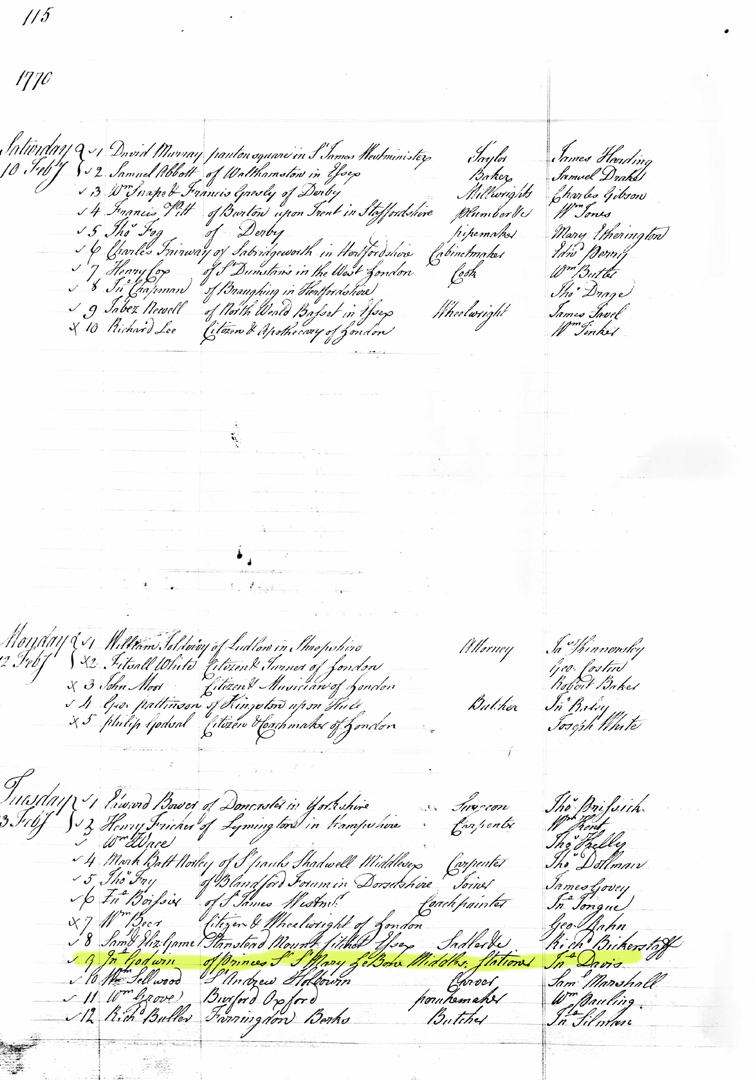 115
1770
Saturday 10 Feby
1 David Murray panton square in St James Westminster Taylor James Harding
2 Samuel Abbott of Walthamstow in Essex Baker Samuel Drake
3 Wm Snape & Francis Gresly of Derby Millwrights Charles Gibson
4 Francis Pitt of Burton upon Trent in Staffordshire plumber &c Wm Jones
5 Thos Fog of Derby pipemaker Mary Etherington
6 Charles Fairway of Sabridgeworth in Hertfordshire Cabinetmaker Edwd Penny
7 Henry Cox of St Dunstans in the West London Cook Wm Butler
8 Jno Chapman of Braughing in Hertfordshire Thos Drage
9 Jabez Newell of North Weald Basset in Essex Wheelwright James
x 10 Richard Lee Citizen & Apothecary of London Wm Tinker
Monday 12 Feby
1 William of Ludlow in Shropshire Attorney
x 2 White Citizen & Turner of London Geo. Costin
x 3 John Moor Citizen & Musician of London Robert Baker
4 Geo. pattinson of Kingston upon Hull Butcher Jno
x 5 philip Godsal Citizen & Coachmaker of London Joseph White
Tuesday 13 Feby
1 Edward Bower of Doncaster in Yorkshire Surgeon Thos
2 Henry Fricker of Lymington in Hampshire Carpenter Wm Kent
Wm Ware Thos Kelly
4 Mark Batt of St pauls Shadwell Middlesex Carpenter Thos Dollman
5 Thos Fry of Blandford Forum in Dorsetshire Joiner James Govey
6 Jno Boissier of St James Westmr Coachpainter Jno Tongue
x 7 Wm Beer Citizen & Wheelwright of London Geo. Hahn
8 Saml & Eliz Game Stansted Essex Sadler &c Richd Bickerstaff
9 Jno Godwin of Princes St St Mary Le Bone Middlx Stationer Jno Davis
10 Wm Sellwood St Andrew Holborn Carver Saml Marshall
11 Wm Grove Burford Oxford Wm Pauling
12 Richd Butler Farringdon Berks Butcher Jno Silman